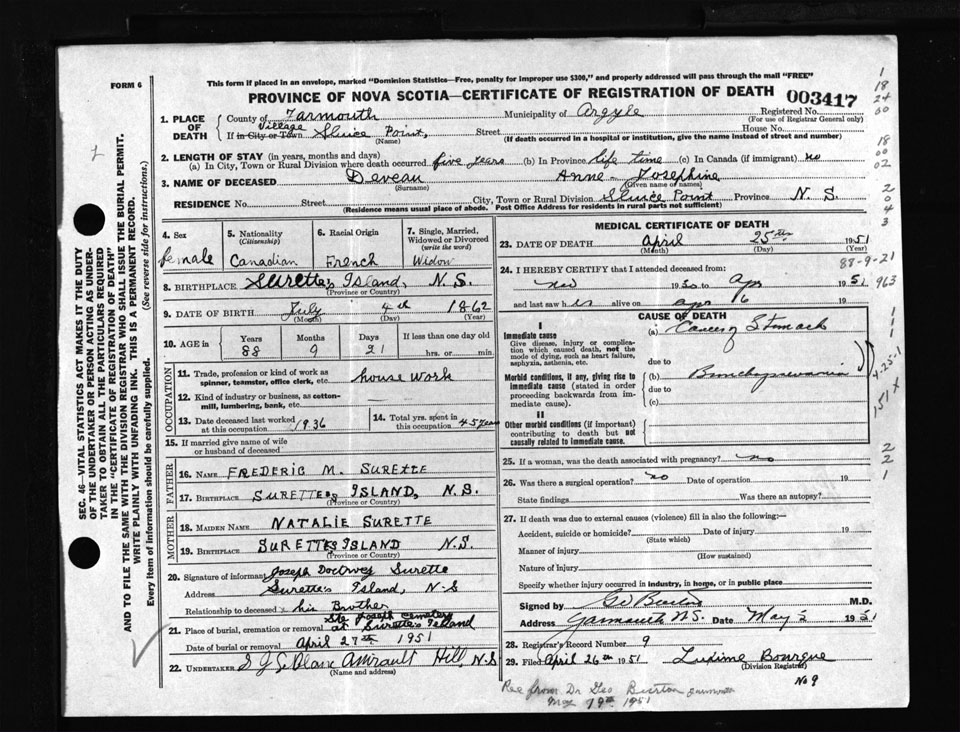 FORM 6
This form if placed in an envelope, marked "Dominion Statistics—Free, penalty for improper use $300," and properly addressed will pass through the mail "FREE"
PROVINCE OF NOVA SCOTIA—CERTIFICATE OF REGISTRATION OF DEATH 003417
1. PLACE OF DEATH County of Yarmouth Municipality of Argyle Registered No.
(For use of Registrar General only)
If in City or Town Village Sluice Point, Street House No.
(Name) (If death occurred in a hospital or institution, give the name instead of street and number)
2. LENGTH OF STAY (in years, months and days)
(a) In City, Town or Rural Division where death occurred five years (b) In Province life time (c) In Canada (if immigrant) no
3. NAME OF DECEASED Deveau Anne - Josephine
(Surname) (Given name or names)
RESIDENCE No. Street City, Town or Rural Division Sluice Point Province N. S.
(Residence means usual place of abode. Post Office Address for residents in rural parts not sufficient)
4. Sex female
5. Nationality (Citizenship) Canadian
6. Racial Origin French
7. Single, Married, Widowed or Divorced (write the word) Widow
8. BIRTHPLACE Surette's Island, N. S.
(Province or Country)
9. DATE OF BIRTH July 4th 1862
(Month) (Day) (Year)
10. AGE in Years 88 Months 9 Days 21 If less than one day old hrs. or min.
OCCUPATION
11. Trade, profession or kind of work as spinner, teamster, office clerk, etc. house work
12. Kind of industry or business, as cotton-mill, lumbering, bank, etc.
13. Date deceased last worked at this occupation 1936
14. Total yrs. spent in this occupation 45 years
15. If married give name of wife or husband of deceased
FATHER
16. NAME FREDERIC M. SURETTE
17. BIRTHPLACE SURETTES ISLAND, N.S.
(Province or Country)
MOTHER
18. MAIDEN NAME NATALIE SURETTE
19. BIRTHPLACE SURETTES ISLAND N.S.
(Province or Country)
20. Signature of informant Joseph Surette
Address Surette's Island, N-S
Relationship to deceased his Brother
21. Place of burial, cremation or removal Ste Joseph cemetery at Surette's Island
Date of burial or removal April 27th 1951
22. UNDERTAKER S J LeBlanc Amirault Hill, N-S
(Name and address)
MEDICAL CERTIFICATE OF DEATH
23. DATE OF DEATH April 25th 1951
(Month) (Day) (Year)
24. I HEREBY CERTIFY that I attended deceased from:
Nov 1950 to Apr 1951
and last saw her alive on apr 6 19
CAUSE OF DEATH
I
Immediate cause
Give disease, injury or complication which caused death, not the mode of dying, such as heart failure, asphyxia, asthenia, etc.
(a) Cancer of Stomach
due to
Morbid conditions, if any, giving rise to immediate cause (stated in order proceeding backwards from immediate cause).
(b) Bronchopneumonia
due to
(c)
II
Other morbid conditions (if important) contributing to death but not causally related to immediate cause.
25. If a woman, was the death associated with pregnancy? no
26. Was there a surgical operation? no Date of operation 19
State findings Was there an autopsy?
27. If death was due to external causes (violence) fill in also the following:—
Accident, suicide or homicide? Date of injury 19
(State which)
Manner of injury
(How sustained)
Nature of injury
Specify whether injury occurred in industry, in home, or in public place
Signed by M.D.
Address Yarmouth N.S. Date May 2 1951
28. Registrar's Record No. 9
29. Filed April 26th 1951 Luxime Bourque
(Division Registrar)
No 9
Rec from Dr Geo Burton Yarmouth
May 19th 1951
SEC. 46—VITAL STATISTICS ACT MAKES IT THE DUTY
OF THE UNDERTAKER OR PERSON ACTING AS UNDER-
TAKER TO OBTAIN ALL THE PARTICULARS REQUIRED
IN THE "CERTIFICATE OF REGISTRATION OF DEATH"
AND TO FILE THE SAME WITH THE DIVISION REGISTRAR WHO SHALL ISSUE THE BURIAL PERMIT.
WRITE PLAINLY WITH UNFADING INK. THIS IS A PERMANENT RECORD.
Every item of information should be carefully supplied. (See reverse side for instructions.)
1
18
24
00
18
00
02
2
0
4
3
88-9-21
963
1
1
1
4-25-1
151 X
2
2
1